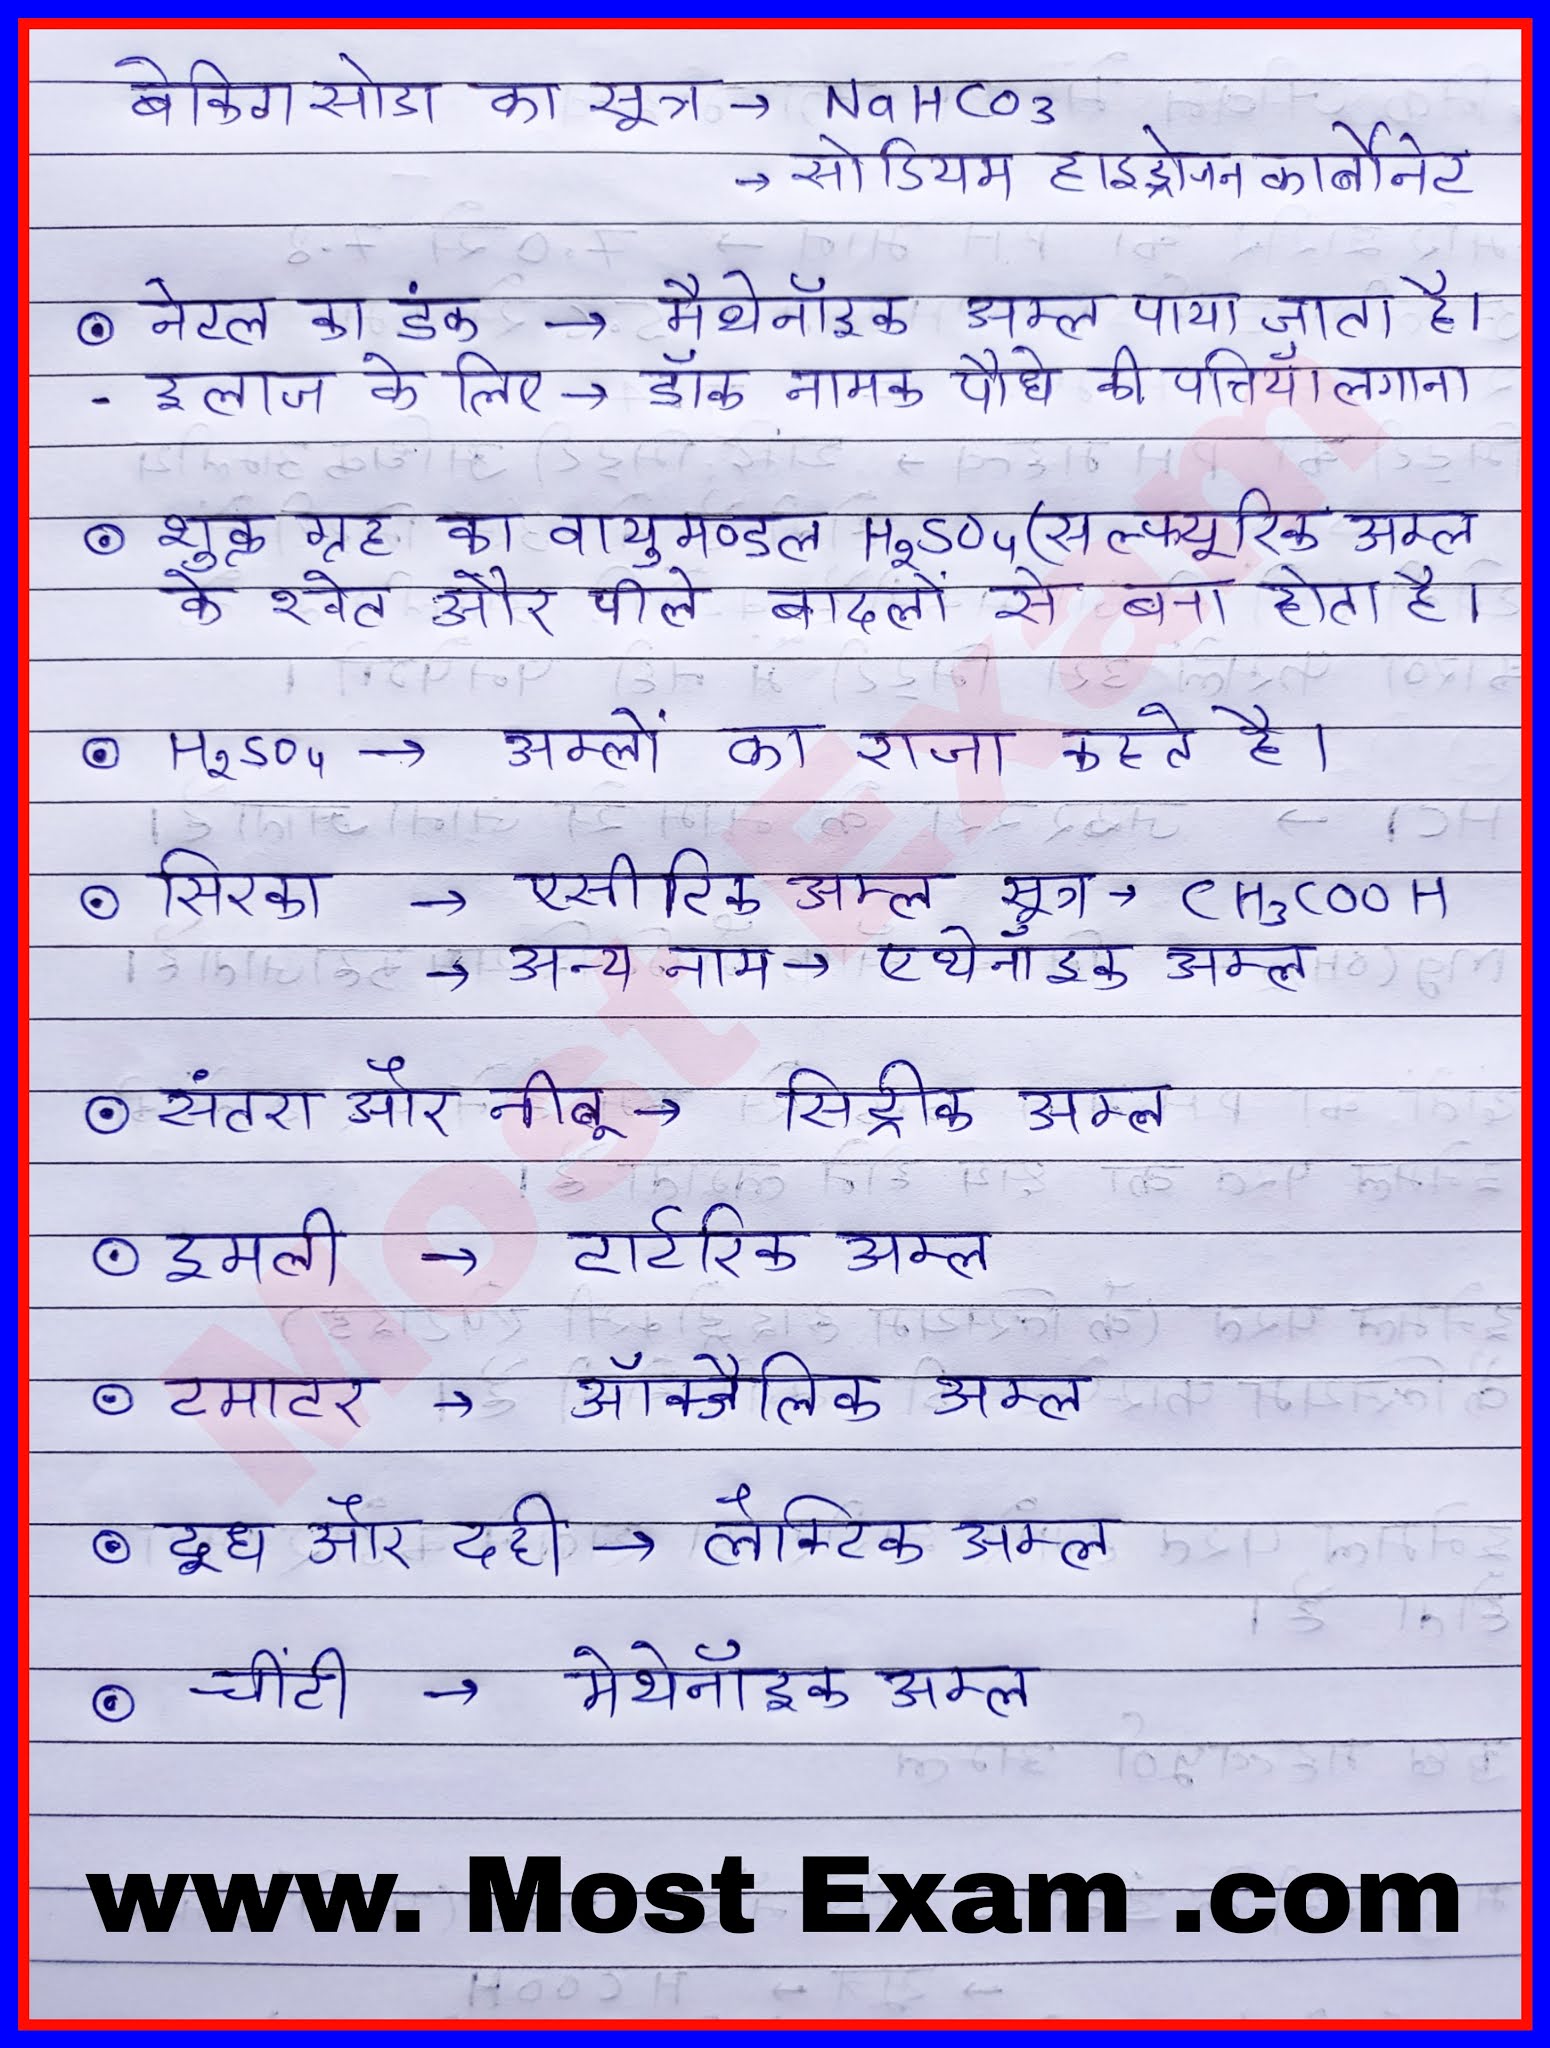 बेकिंग सोडा का सूत्र → NaHCO3
→ सोडियम हाइड्रोजन कार्बोनेट
⊙ नेटल का डंक → मैथेनॉइक अम्ल पाया जाता है।
- इलाज के लिए → डॉक नामक पौधे की पत्तियाँ लगाना
⊙ शुक्र ग्रह का वायुमण्डल H2SO4 (सल्फ्यूरिक अम्ल
के श्वेत और पीले बादलों से बना होता है।
⊙ H2SO4 → अम्लों का राजा कहते है।
⊙ सिरका → एसीटिक अम्ल सूत्र → CH3COOH
→ अन्य नाम → एथेनॉइक अम्ल
⊙ संतरा और नीबू → सिट्रीक अम्ल
⊙ इमली → टार्टरिक अम्ल
⊙ टमाटर → ऑक्जैलिक अम्ल
⊙ दूध और दही → लैक्टिक अम्ल
⊙ चींटी → मेथेनॉइक अम्ल
Most Exam
www. Most Exam .com